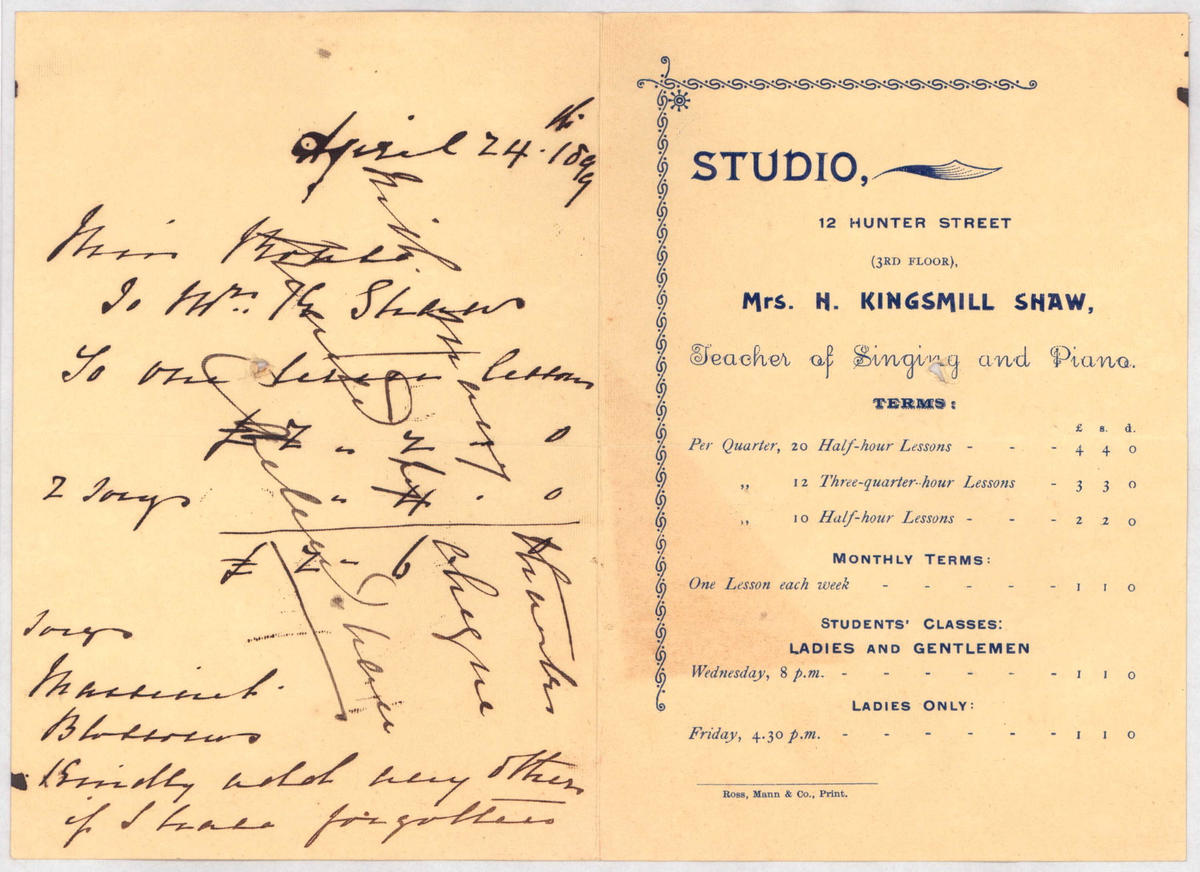 April 24th 1899
Miss
To Mrs. K Shaw
To one lesson
£ 2 " 2 0
2 songs " 4 . 0
£ 2 - 6
Songs
Massenet.
Blossoms
Kindly add any others
if I have forgotten
With
many
thanks
cheque
STUDIO,
12 HUNTER STREET
(3RD FLOOR),
Mrs. H. KINGSMILL SHAW,
Teacher of Singing and Piano.
TERMS:
£ s. d.
Per Quarter, 20 Half-hour Lessons - - - 4 4 0
„ 12 Three-quarter-hour Lessons - 3 3 0
„ 10 Half-hour Lessons - - - 2 2 0
MONTHLY TERMS:
One Lesson each week - - - - - 1 1 0
STUDENTS' CLASSES:
LADIES AND GENTLEMEN
Wednesday, 8 p.m. - - - - - - 1 1 0
LADIES ONLY:
Friday, 4.30 p.m. - - - - - - 1 1 0
Ross, Mann & Co., Print.